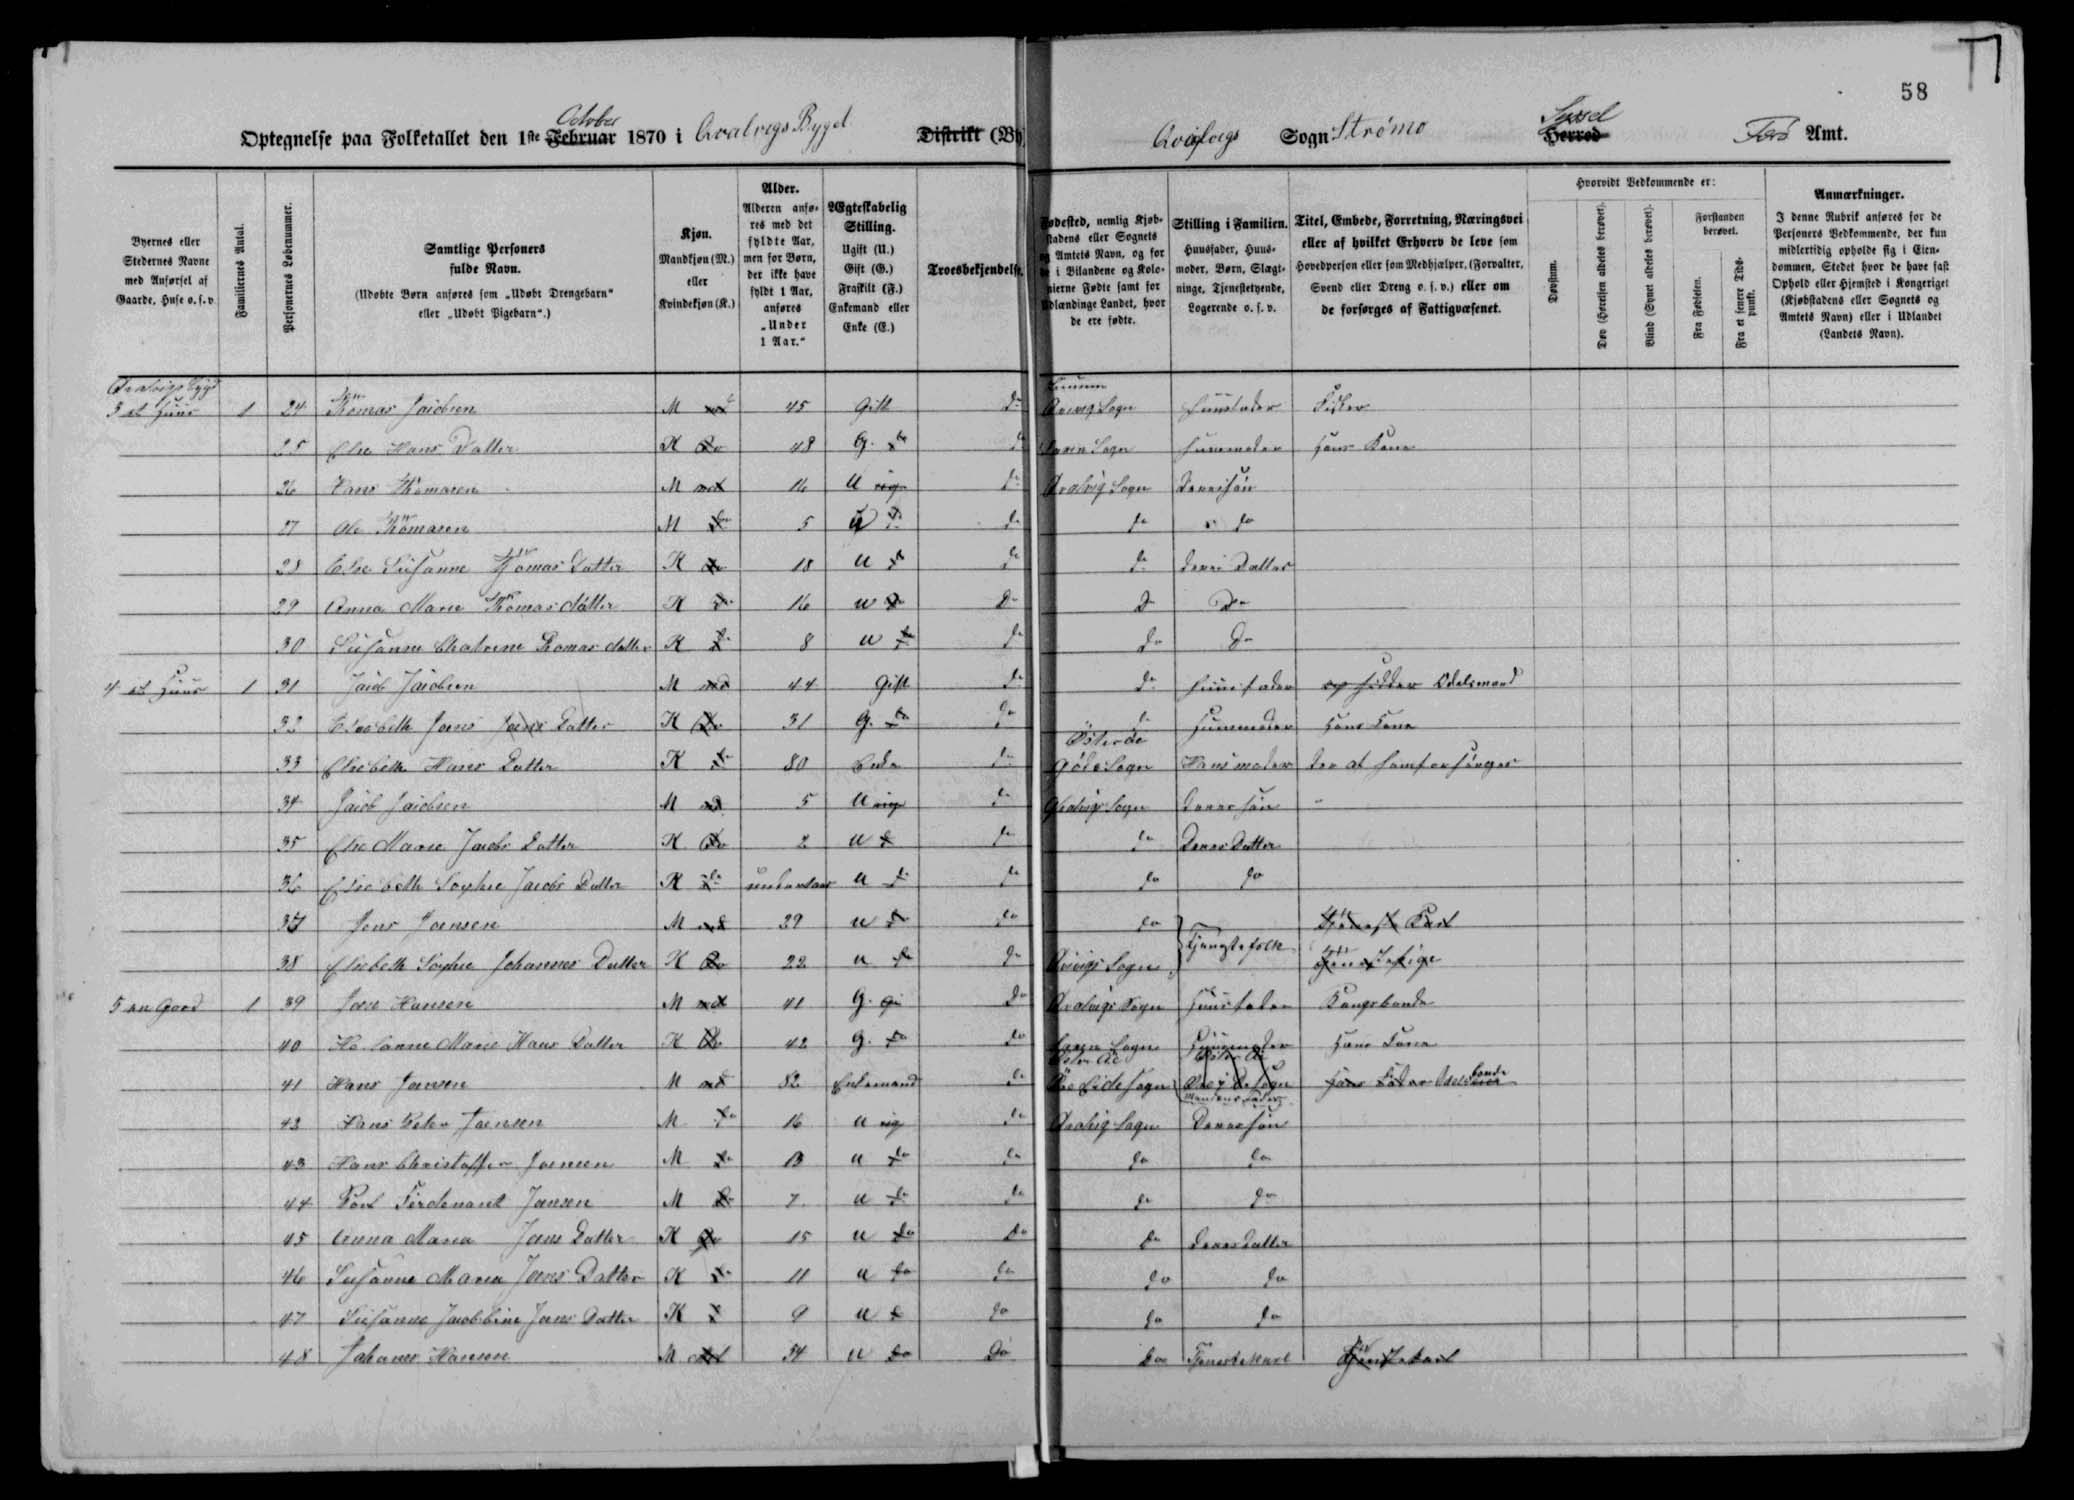 58
October
Optegnelse paa Folketallet den 1ste Februar 1870 i Qvalvigs Bygd Distrikt (By Qvalvigs Sogn Strömo Syssel Herred Färö Amt.
Byernes eller Stedernes Navne med Anførsel af Gaarde, Huse o. s. v.
Familiernes Antal.
Personernes Løbenummer.
Samtlige Personers fulde Navn.
(Udøbte Børn anføres som „Udøbt Drengebarn" eller „Udøbt Pigebarn".)
Kjøn.
Mandkjøn (M.) eller Kvindekjøn (K.)
Alder.
Alderen anføres med det fyldte Aar, men for Børn, der ikke have fyldt 1 Aar, anføres „Under 1 Aar."
Ægteskabelig Stilling.
Ugift (U.) Gift (G.) Fraskilt (F.) Enkemand eller Enke (E.)
Troesbekjendelse.
Fødested, nemlig Kjøbstadens eller Sognets og Amtets Navn, og for de i Bilandene og Kolonierne Fødte samt for Udlændinge Landet, hvor de ere fødte.
Stilling i Familien.
Huusfader, Huusmoder, Børn, Slægtninge, Tjenestetyende, Logerende o. s. v.
Titel, Embede, Forretning, Næringsvei eller af hvilket Erhverv de leve som Hovedperson eller som Medhjælper, (Forvalter, Svend eller Dreng o. s. v.) eller om de forsørges af Fattigvæsenet.
Hvorvidt Vedkommende er:
Døvstum.
Døv (Hørelsen aldeles berøvet).
Blind (Synet aldeles berøvet).
Forstanden berøvet.
Fra Fødselen.
Fra et senere Tidspunkt.
Anmærkninger.
I denne Rubrik anføres for de Personers Vedkommende, der kun midlertidig opholde sig i Eiendommen, Stedet hvor de have fast Ophold eller Hjemsted i Kongeriget (Kjøbstadens eller Sognets og Amtets Navn) eller i Udlandet (Landets Navn).
Qvalvigs bygd
3 et Huus 1 24 Thömas Jacobsen M 45 Gift do Sogn Huusfader Fisker
25 Else Hans Datter K do 48 G. do do Sogn Huusmoder Hans Kone
26 Hans Thömasen M 16 U do Qvalvig Sogn Deres sön
27 Ole Thömasen M do 5 U do do do do
28 Else Susanne Thömas Datter K do 18 U do do do Deres Datter
29 Anna Marie Thömas datter K do 16 U do do do do
30 Susanne Chatrine Tomas datter K do 8 U do do do do
4 et Huus 1 31 Jacob Jacobsen M 44 Gift do do Huusfader Odelsmand
32 Elsebeth Joens Joens Datter K do 31 G. do do do Huusmoder Hans Kone
33 Elsebeth Hans Datter K do 80 Enke do Österöe Göte Sogn Hans moder
34 Jacob Jacobsen M 5 U do Qvalvigs Sogn Deres sön
35 Else Marie Jacobs Datter K do 2 U do do do Deres Datter
36 Elsebeth Sophie Jacobs Datter K do under 1 aar U do do do do
37 Jens Joensen M 29 U do do do Tjenestefolk Tjeneste Karl
38 Elsebeth Sophie Johannes Datter K do 22 U do do Sogn Tjenestepige
5 en Gaard 1 39 Joen Hansen M 41 G. do Qvalvigs Sogn Huusfader Kongsbonde
40 Marie Hans Datter K do 42 G. do do Sogn Huusmoder Hans Kone
41 Hans Joensen M 82 Enkemand do Öster Öe Sogn Mandens Fader Hans Fader Odelsbonde
42 Hans Peter Joensen M do 16 U do Qvalvig Sogn Deres sön
43 Hans Christoffer Joensen M do 13 U do do do do
44 Poul Ferdenant Joensen M do 7 U do do do do
45 Anna Maria Joens Datter K do 15 U do do do Deres datter
46 Susanne Maria Joens Datter K do 11 U do do do do
47 Susanne Jacobine Joens Datter K 9 U do do do do
48 Johanes Hansen M 34 U do do do Tjenestekarl Tjenstekarl